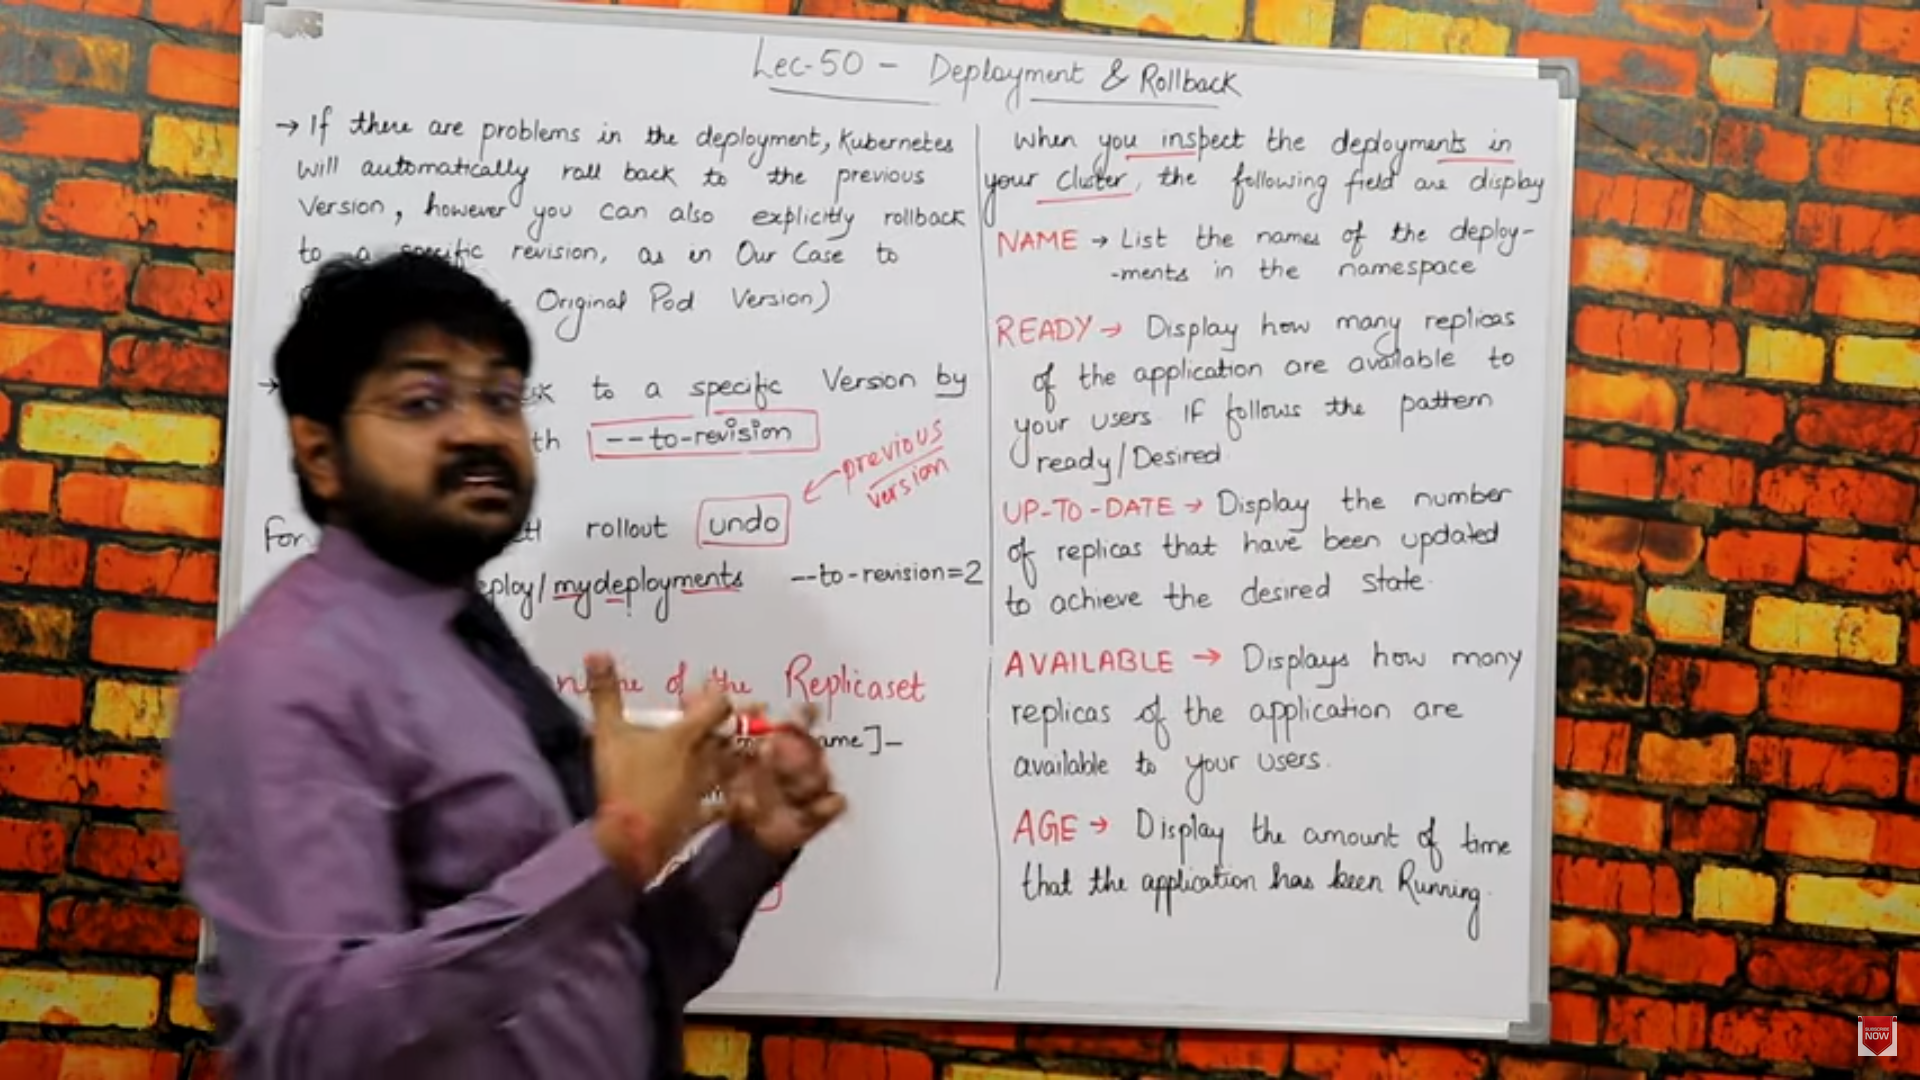 Lec-50 - Deployment & Rollback
→ If there are problems in the deployment, Kubernetes
will automatically roll back to the previous
Version, however you can also explicitly rollback
to a specific revision, as in Our Case to
Original Pod Version)
→ to a specific Version by
--to-revision
previous
version
For rollout undo
/mydeployments --to-revision=2
of the Replicaset
]-
When you inspect the deployments in
your cluster, the following field are display
NAME → List the names of the deploy-
-ments in the namespace
READY → Display how many replicas
of the application are available to
your users. If follows the pattern
ready/Desired
UP-TO-DATE → Display the number
of replicas that have been updated
to achieve the desired state.
AVAILABLE → Displays how many
replicas of the application are
available to your users.
AGE → Display the amount of time
that the application has been Running.
SUBSCRIBE
NOW